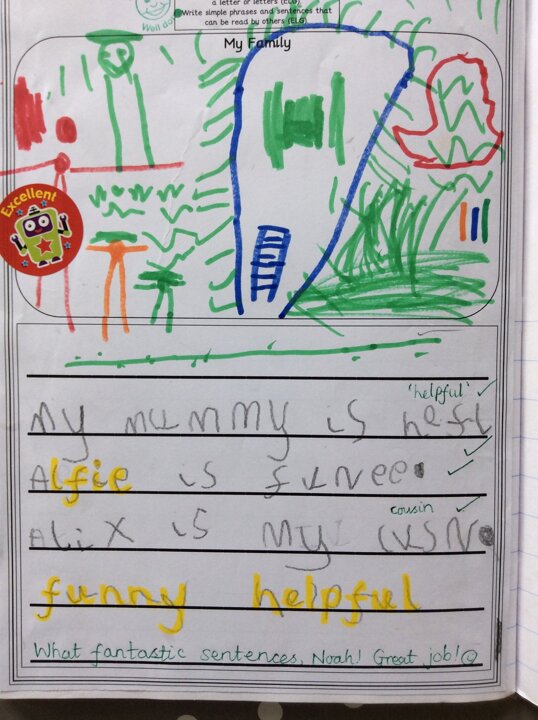 a letter or letters (ELG)
Write simple phrases and sentences that
can be read by others (ELG)
Well do
My Family
Excellent
'helpful' ✓
My mummy is hefl
Alfie is funee.
cousin ✓
Alix is My cusn.
funny helpful
What fantastic sentences, Noah! Great job! ☺